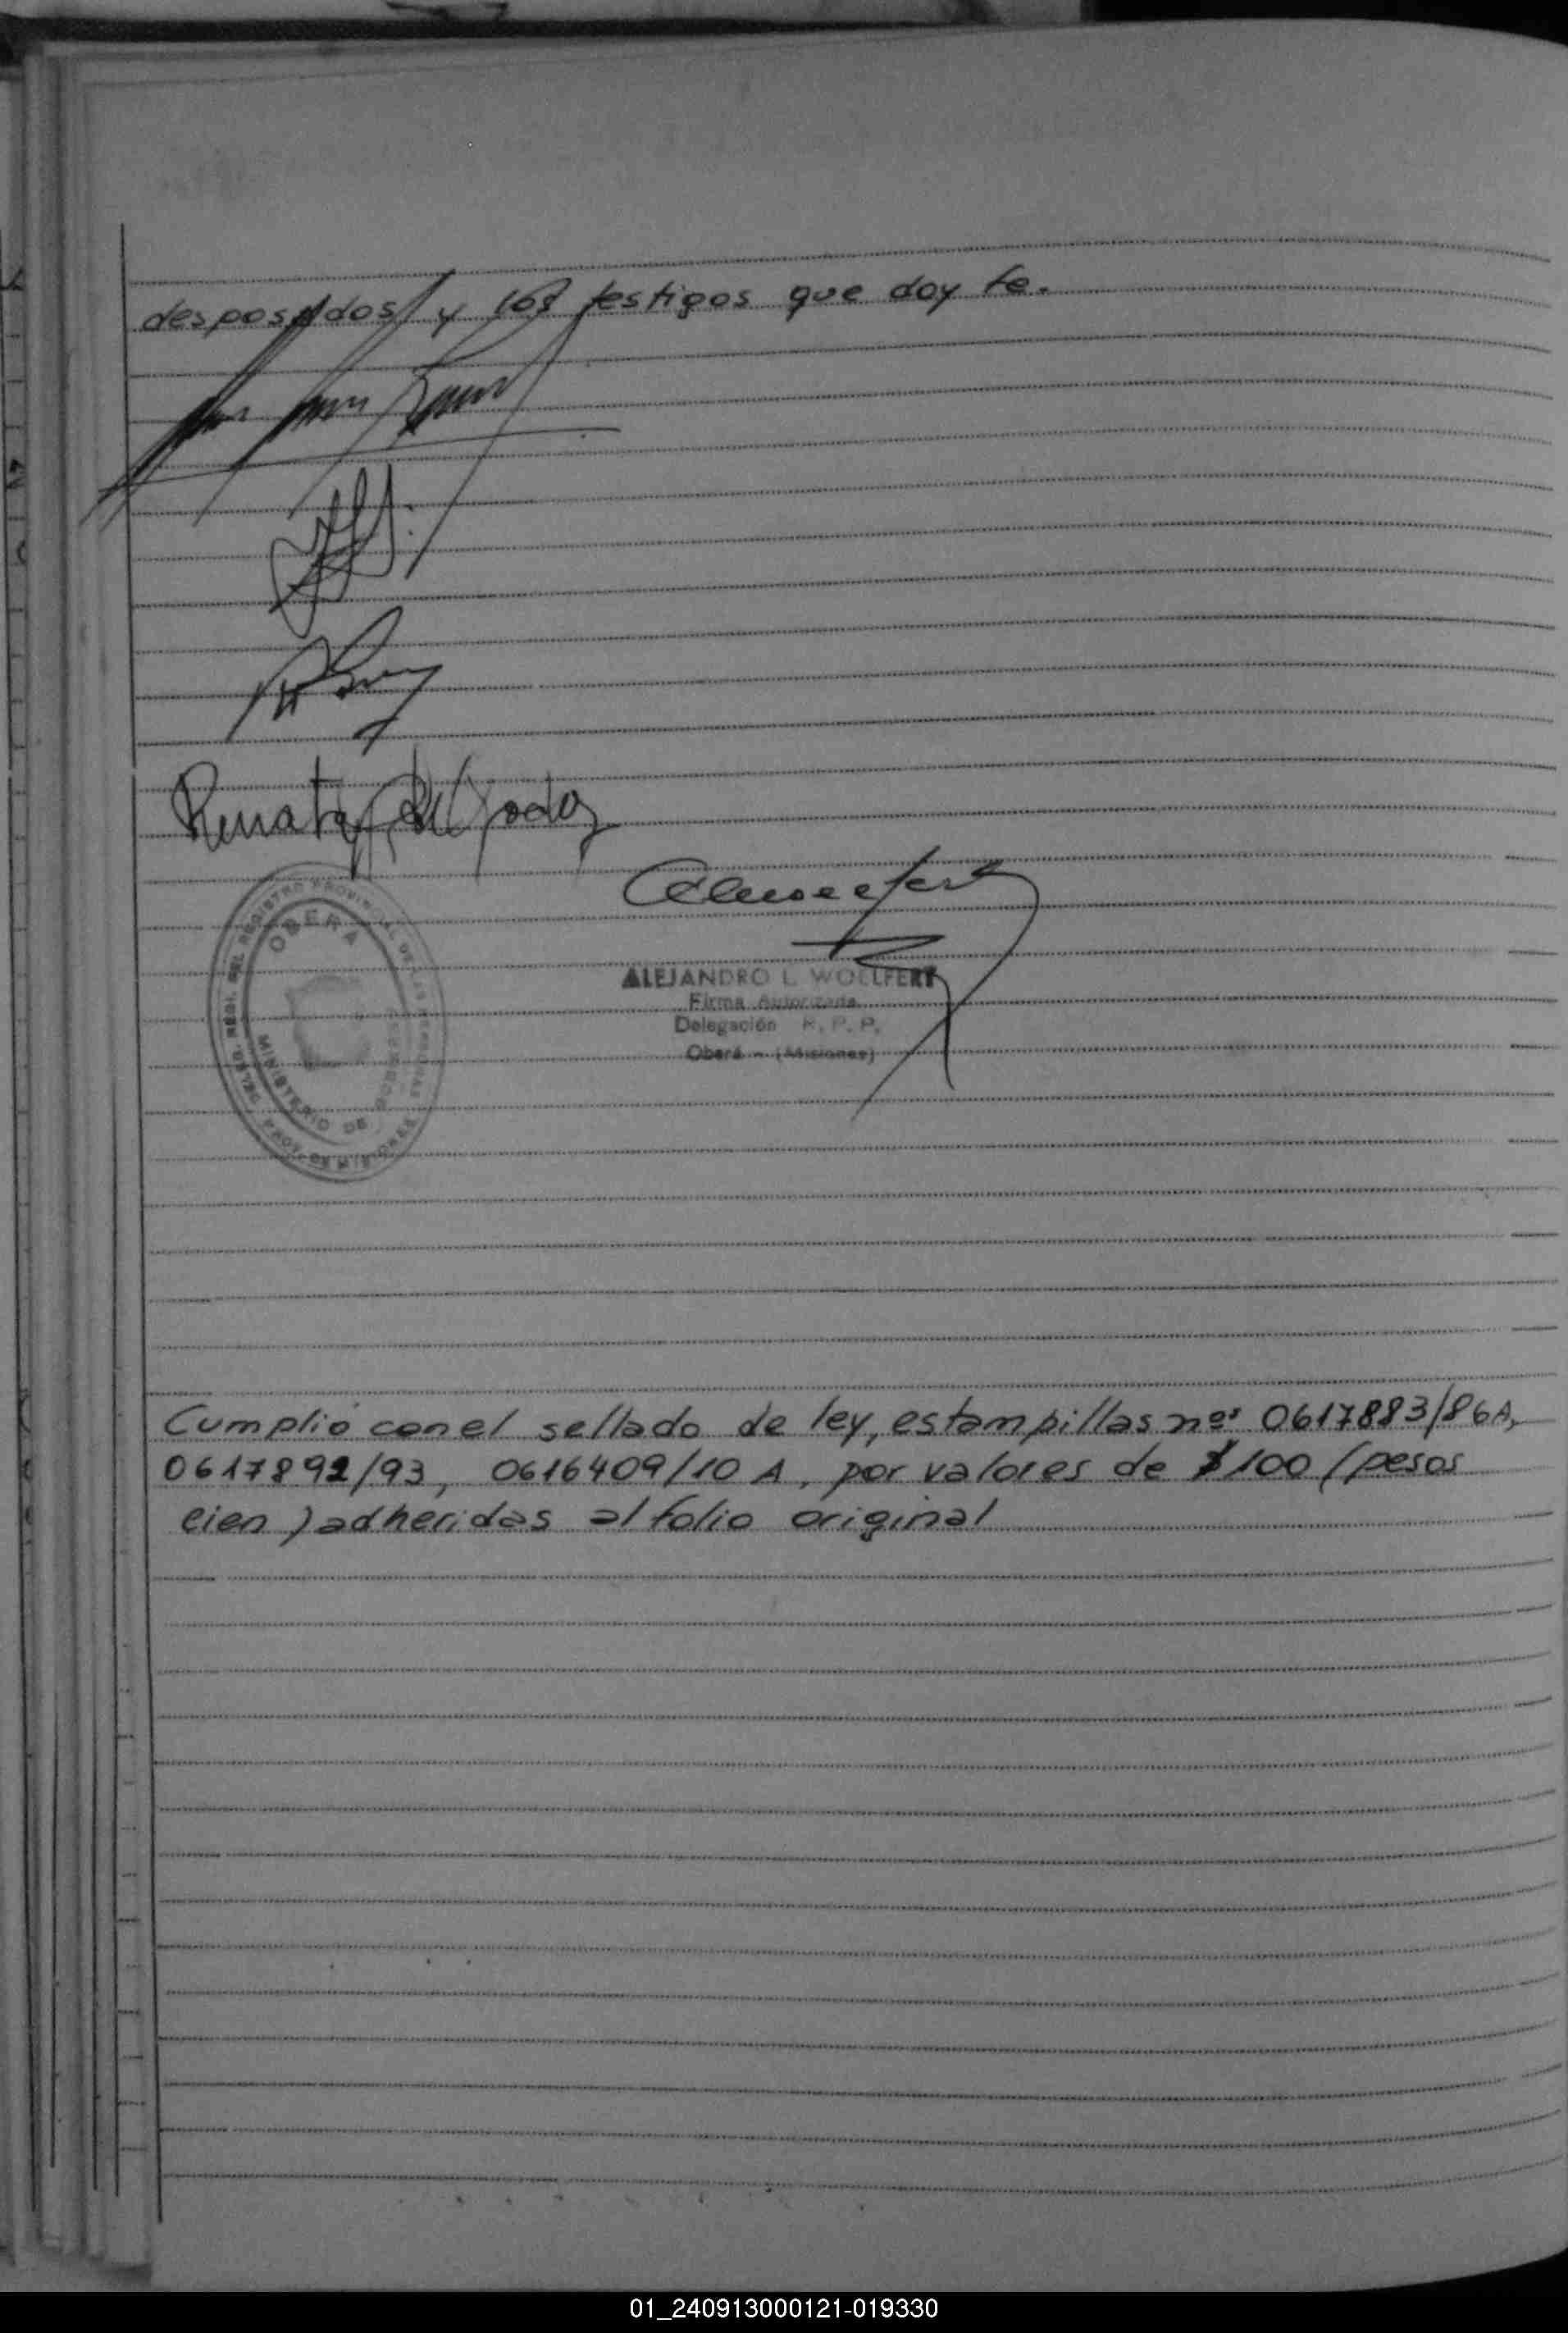 desposados y los testigos que doy fe.
Renata
OBERA
MINISTERIO DE
ALEJANDRO L. WOELFERT
Firma Autorizada
Delegación R. P. P.
Oberá - (Misiones)
Cumplió con el sellado de ley, estampillas nos 0617883/86A,
0617892/93, 0616409/10 A, por valores de $100 (pesos
cien) adheridas al folio original
01_240913000121-019330